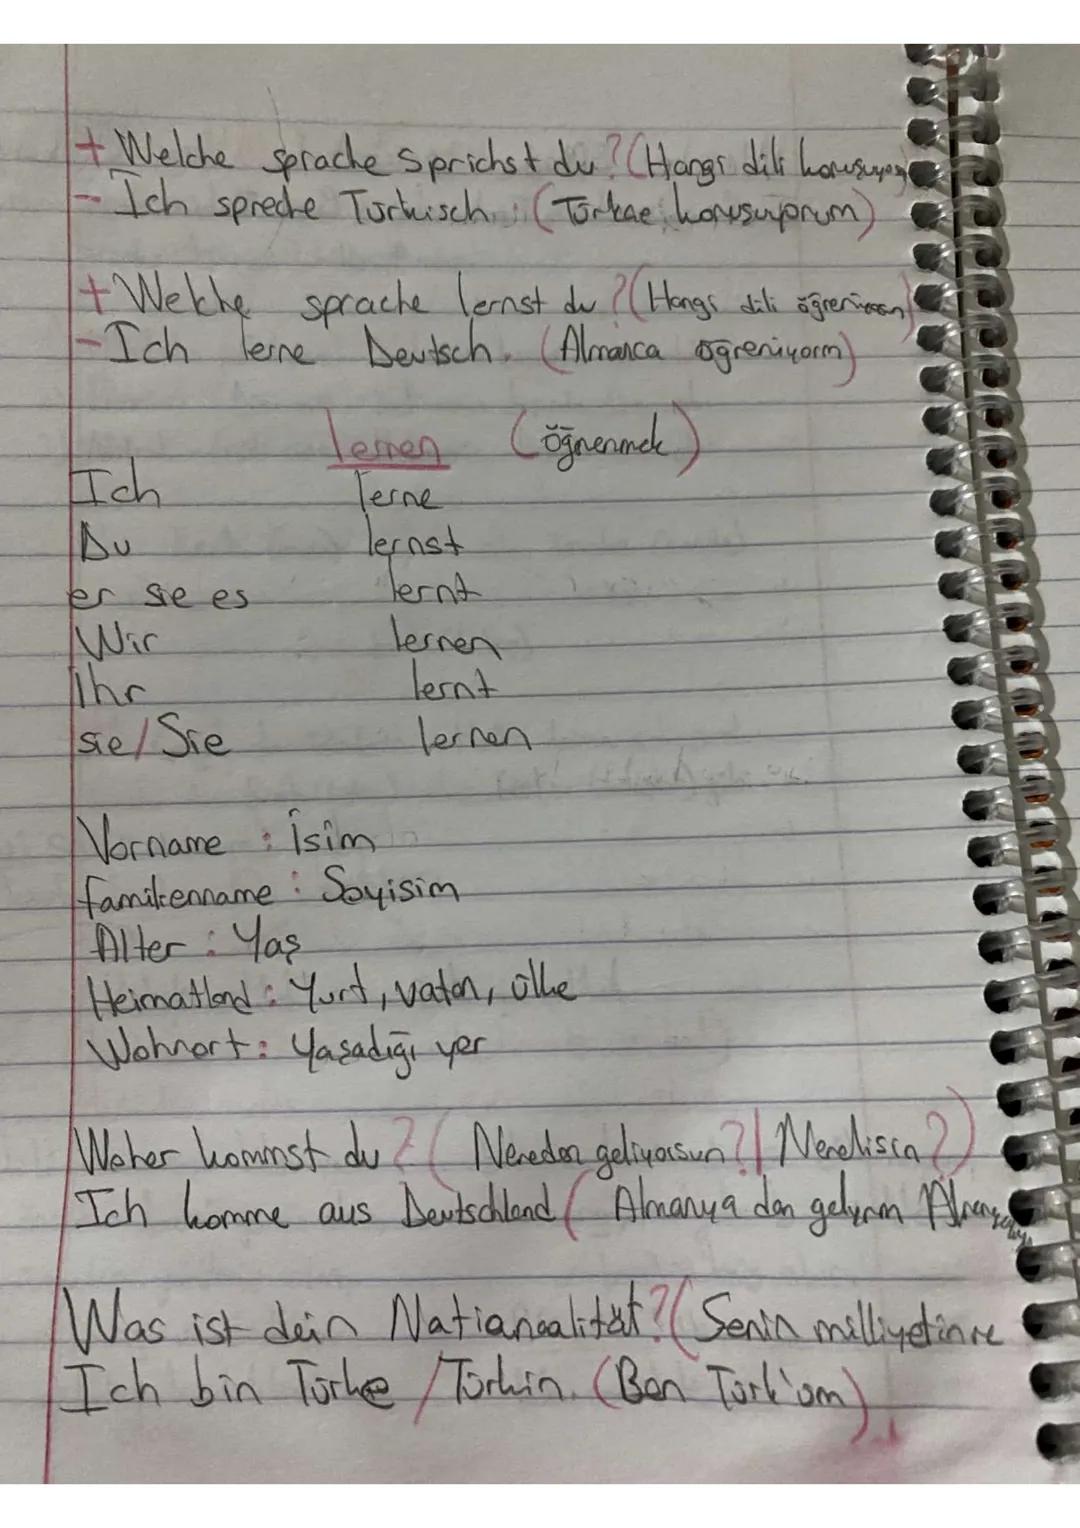 + Welche sprache sprichst du? (Hangi dili konuşuyo
- Ich spreche Türkisch. : (Türkçe konuşuyorum)
+ Welche sprache lernst du? (Hangi dili öğreniyosn)
- Ich lerne Deutsch. (Almanca öğreniyorm)
lernen (öğrenmek)
Ich lerne
Du lernst
er sie es lernt
Wir lernen
Ihr lernt
sie / Sie lernen
Vorname : İsim
familienname : Soyisim
Alter : Yaş
Heimatland : Yurt, vatan, ülke
Wohnort : Yaşadığı yer
Woher kommst du? (Nereden geliyorsun? / Nerelisin?)
Ich komme aus Deutschland (Almanya dan gelyrm
Was ist dein Natianaalität? (Senin milliyetin ne
Ich bin Türke / Türkin. (Ben Türk'üm)